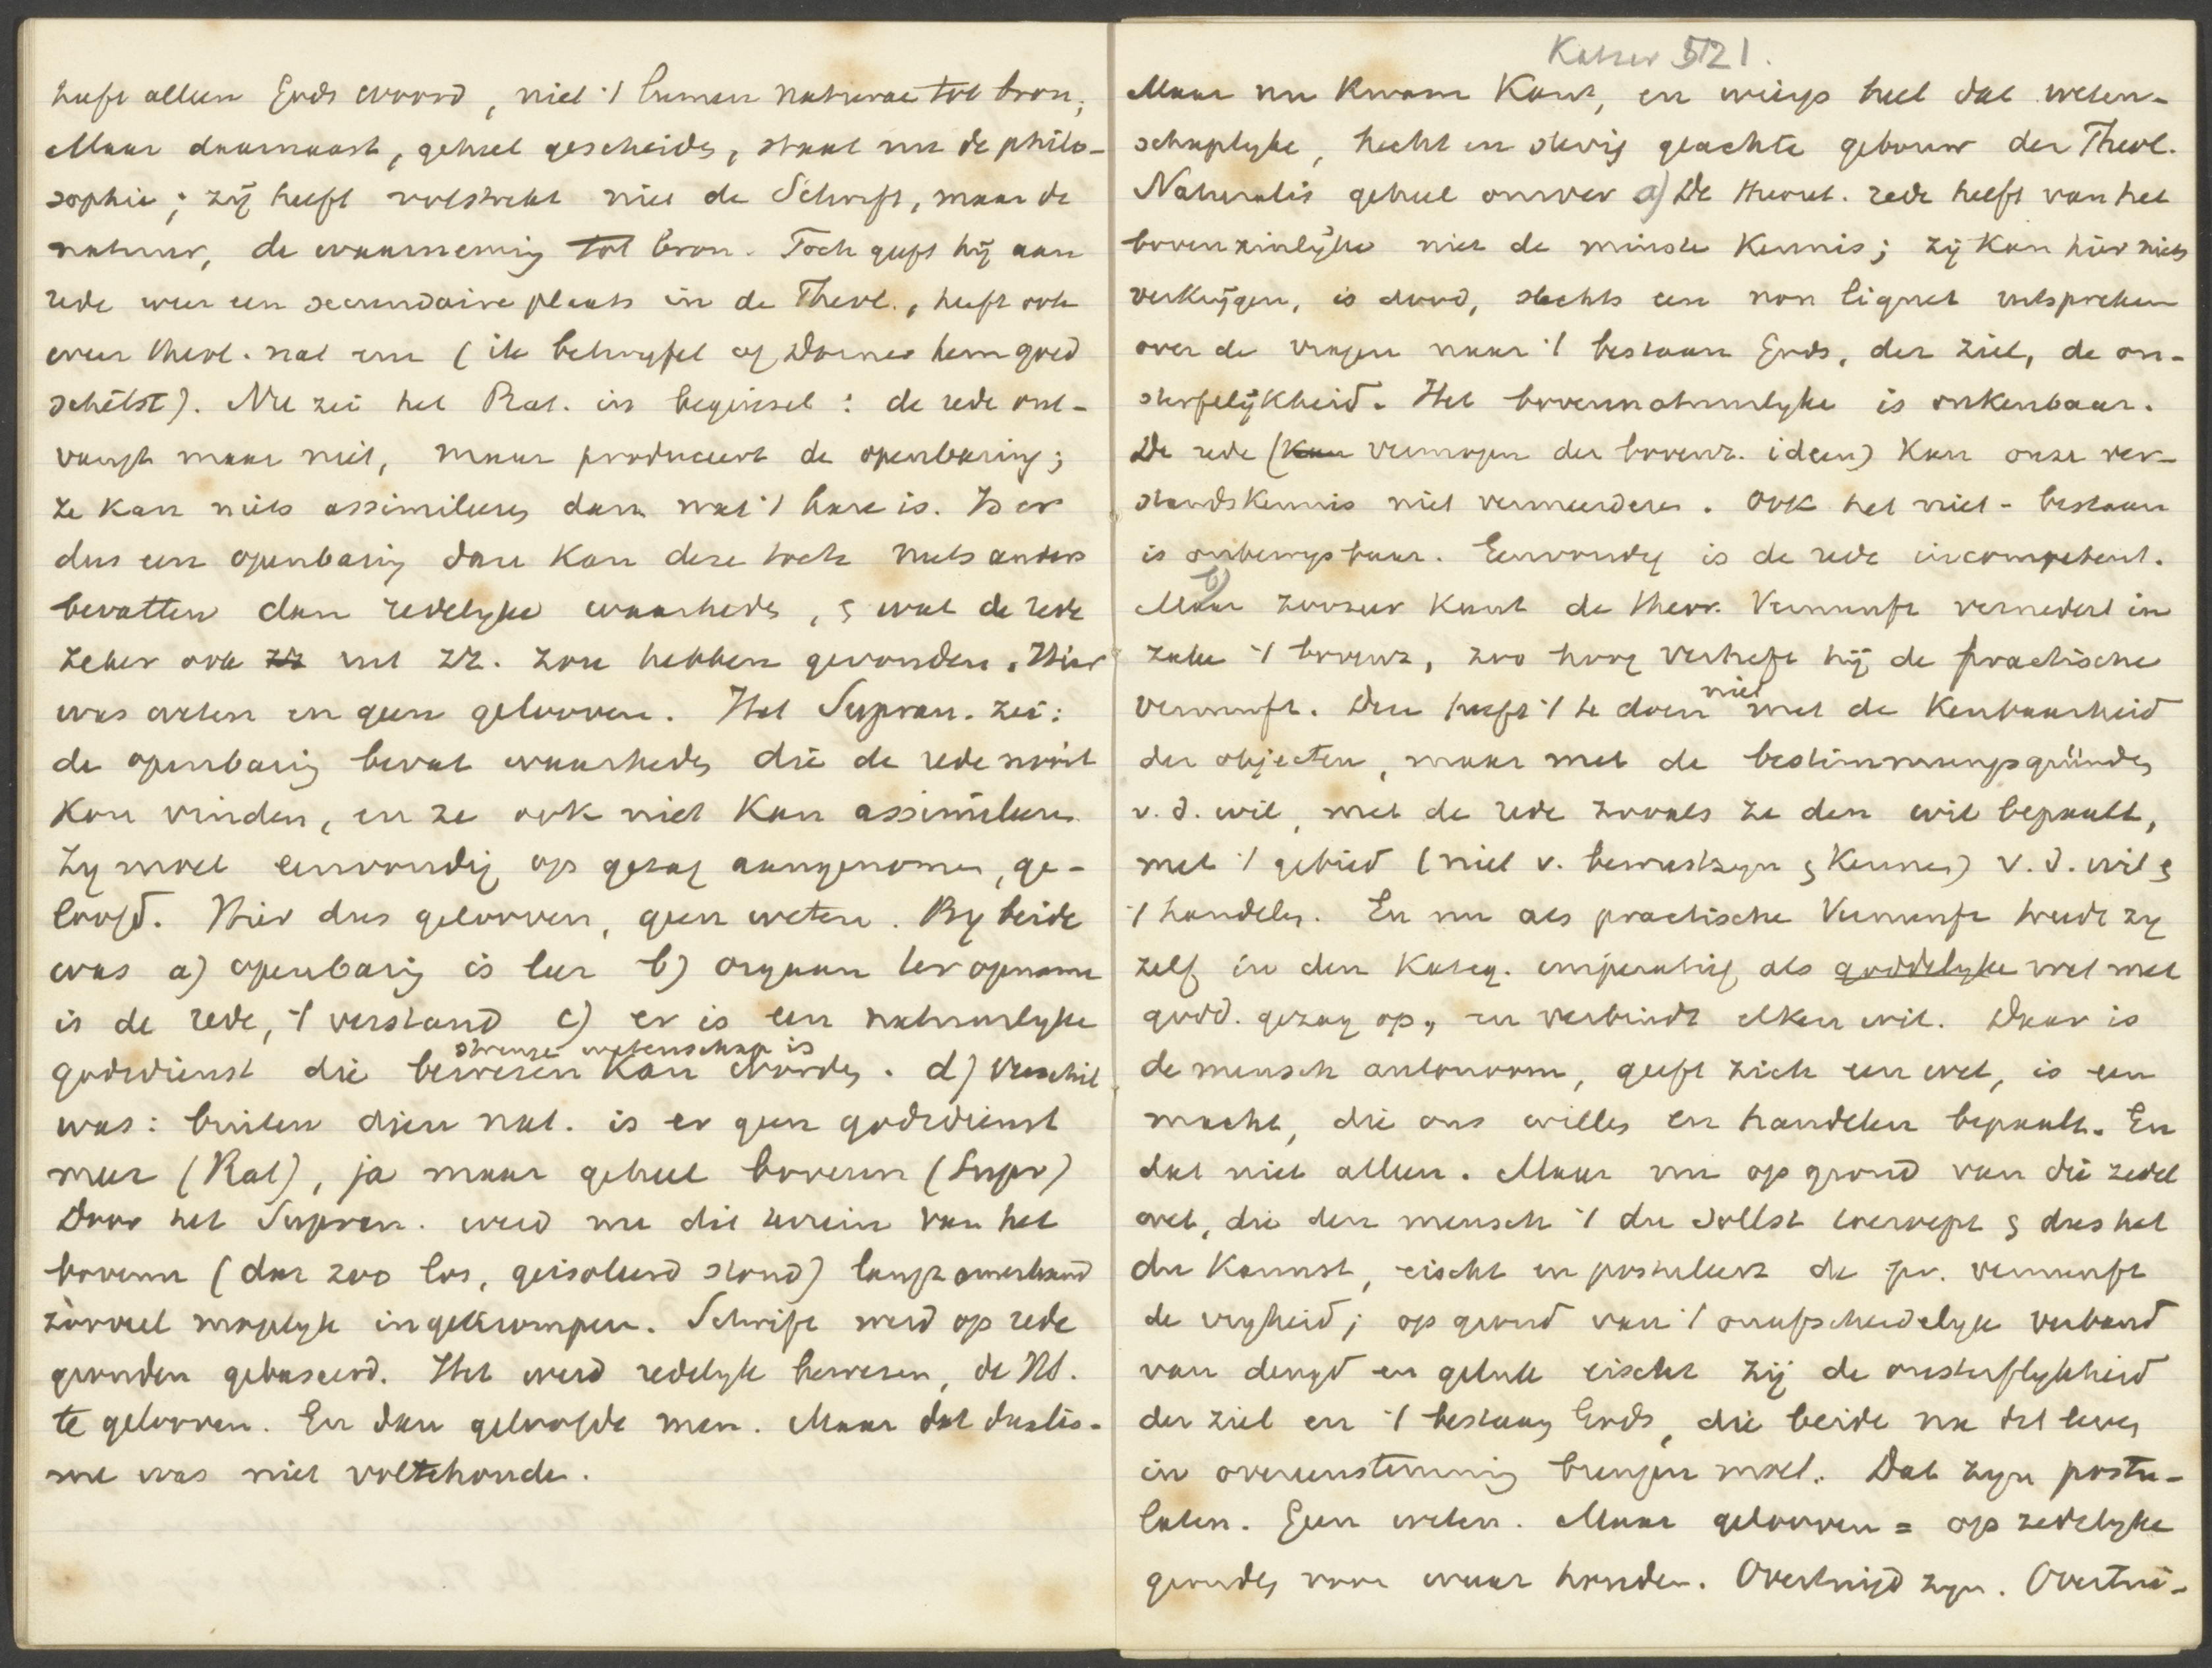 heeft alleen Gods woord, niet 't lumen naturae tot bron;
Maar daarnaast, geheel gescheiden, staat nu de philo-
sophie; zij heeft volstrekt niet de Schrift, maar de
natuur, de waarneming tot bron. Toch geeft hij aan
rede weer een secundaire plaats in de Theol., heeft ook
even theol. nat een (ik betwyfel of Dorner hem goed
schetst). Nu zei het Rat. in beginsel: de rede ont-
vangt maar niet, maar produceert de openbaring;
ze kan niets assimileeren dan wat 't hare is. Is er
dus een openbaring dan kan deze toch niets anders
bevatten dan redelyke waarheden, & wat de rede
zeker ook uit zz. zou hebben gevonden. Hier
was weten en geen gelooven. Het Supran. zei:
de openbaring bevat waarheden die de rede nooit
kon vinden, en ze ook niet kan assimileeren
Zy moet eenvoudig op gezag aangenomen, ge-
loofd. Hier dus gelooven, geen weten. By beide
was a) openbaring is leer b) orgaan ter opname
is de rede, 't verstand c) er is een natuurlyke
strenge wetenschap is
godsdienst die bewezen kan worden. d) Verschil
was: buiten dien nat. is er geen godsdienst
meer (Rat), ja maar geheel bovenn (Supr)
Door het Supran. werd nu dit terrein van het
bovenn (dat zoo los, geisoleerd stond) langzamerhand
zooveel mogelyk ingekrompen. Schrift werd op rede
gronden gebaseerd. Het werd redelyk bewezen, de NT.
te gelooven. En dan geloofde men. Maar dat dualis-
me was niet voltehouden.
Katser 521.
Maar nu kwam Kant, en wierp heel dat weten-
schaplyke, hecht en stevig geachte gebouw der Theol.
Naturalis geheel omver a) De theoret. rede heeft van het
bovenzinlijke niet de minste kennis; zij kan hier niets
verkrijgen, is dood, slechts een non liquet uitspreken
over de vragen naar 't bestaan Gods, der ziel, de on-
sterfelijkheid. Het bovennatuurlyke is onkenbaar.
De rede (vermogen der bovenz. ideen) kan onze ver-
standskennis niet vermeerderen. Ook het niet-bestaan
is onbewysbaar. Eenvoudig is de rede incompetent.
b)
Maar zoozeer Kant de theor. Vernunft vernedert in
zake 't bovenz, zoo hoog verheft hij de practische
vernunft. Die heeft 't te doen niet met de kenbaarheid
der objecten, maar met de bestimmungsgründen
v. d. wil, met de rede zooals ze den wil bepaalt,
met 't gebied (niet v. bewustzyn & kennen) v. d. wil &
't handelen. En nu als practische Vernunft treedt zy
zelf in den Kateg. imperatief als goddelyke wet met
godd. gezag op, en verbindt elken wil. Daar is
de mensch autonoom, geeft zich een wet, is een
macht, die ons willen en handelen bepaalt. En
dat niet alleen. Maar nu op grond van die zedel
wet, die den mensch 't du sollst toeroept & dus het
du kannst, eischt en postuleert de pr. vernunft
de vryheid; op grond van 't onafscheidelyk verband
van deugd en geluk eischt zij de onsterflykheid
der ziel en 't bestaan Gods, die beide na dit leven
in overeenstemming brengen moet. Dat zyn postu-
laten. Geen weten. Maar gelooven = op zedelyke
gronden voor waar houden. Overtuigd zyn. Overtui-